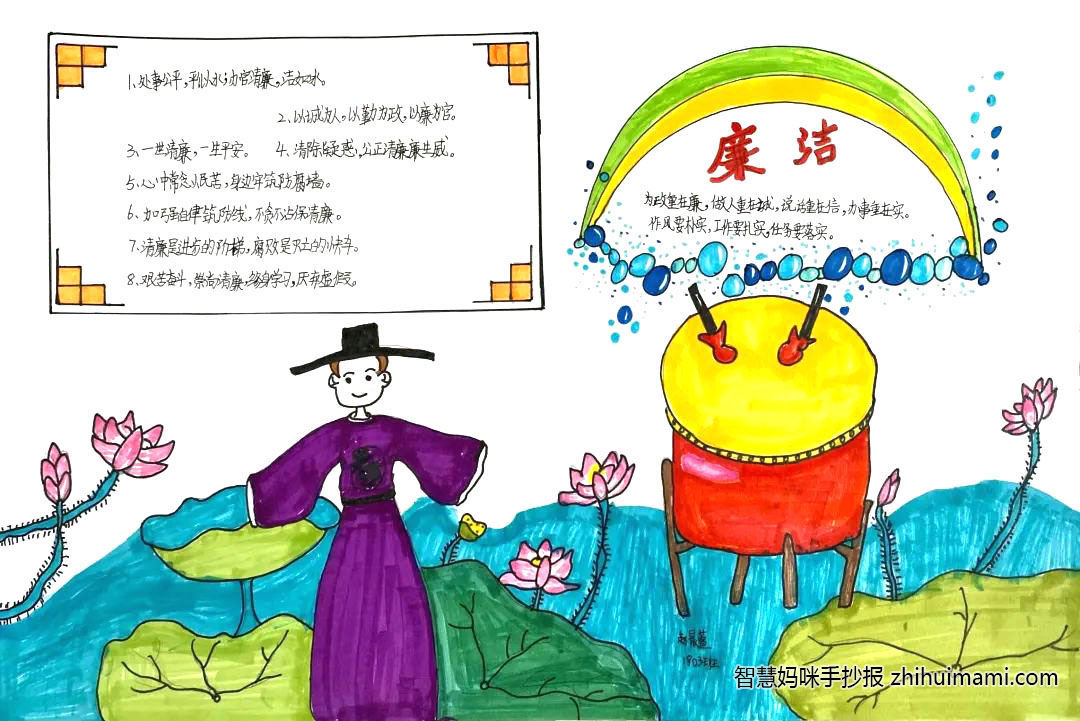 1、处事公平，平似水；办官清廉，洁如水。
2、以诚为人。以勤为政，以廉为官。
3、一世清廉，一生平安。 4、清除疑惑，公正清廉廉生威。
5、心中常念民苦，身边牢筑防腐墙。
6、加强自律筑防线，不贪不沾保清廉。
7、清廉是进步的阶梯，腐败是灭亡的快车。
8、艰苦奋斗，崇尚清廉，终身学习，厌弃虚假。
廉洁
为政重在廉，做人重在诚，说话重在信，办事重在实。
作风要朴实，工作要扎实，任务要落实。
1803班
智慧妈咪手抄报 zhihuimami.com